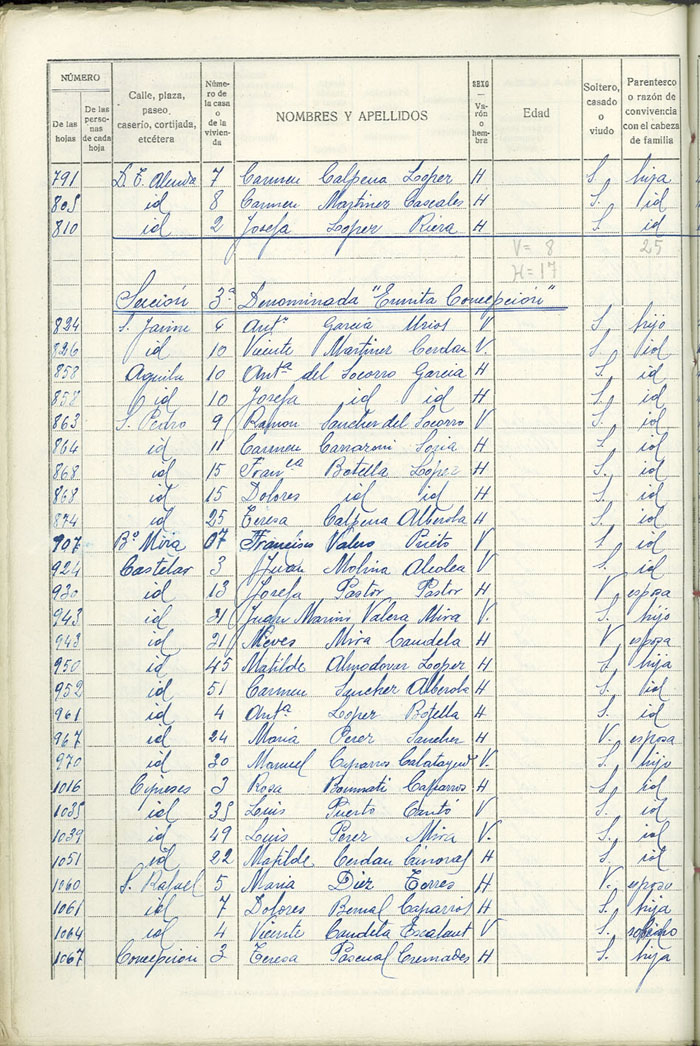 NÚMERO
De las hojas
De las personas de cada hoja
Calle, plaza, paseo, caserío, cortijada, etcétera
Número de la casa o de la vivienda
NOMBRES Y APELLIDOS
SEXO — Varón o hembra
Edad
Soltero, casado o viudo
Parentesco o razón de convivencia con el cabeza de familia
791 7 Carmen Calpena Lopez H S. hija
805 id 8 Carmen Martinez Cascales H S. id
810 id 2 Josefa Lopez Riera H S. id
V = 8 25
H = 17
Sección 3ª Denominada "Ermita Concepción"
824 S. Jaime Antº Garcia Urios V S. hijo
826 id 10 Vicente Martinez Cerdan V. S. id
858 Aguila 10 Antª del Socorro Garcia H S. id
858 id 10 Josefa id id H S. id
863 S. Pedro 9 Ramon Sanchez del Socorro V S. id
864 id 11 Carmen H S. id
868 id 15 Franca Botella Lopez H S. id
868 id 15 Dolores id id H S. id
874 id 25 Teresa Calpena Alberola H S. id
907 Bº Mira 07 Francisco Valero Prieto V S. id
924 Castelar 3 Juan Molina Alcolea V S. id
930 id 13 Josefa Pastor Pastor H V esposa
943 id 21 Juan Valera Mira V. S. hijo
943 id 21 Nieves Mira Candela H V esposa
950 id 45 Matilde Almodovar Lopez H S. hija
952 id 51 Carmen Sanchez Alberola H S. id
961 id 4 Antª Lopez Botella H S. id
967 id 24 Maria Perez Sanchez H V. esposa
970 id 30 Manuel Caparros Calatayud V. S. hijo
1016 Cipreses 3 Rosa Bonmati Caparros H S. id
1035 id 35 Luis Puerto Cantó V S. id
1039 id 49 Luis Perez Mira V. S. id
1051 id 22 Matilde Cerdan H S. id
1060 S. Rafael 5 Maria Diez Torres H V. esposa
1061 id 7 Dolores Bernal Caparros H S. hija
1064 id 4 Vicente Candela Escalant V S. sobrino
1067 Concepcion 3 Teresa Pascual Cremades H S. hija